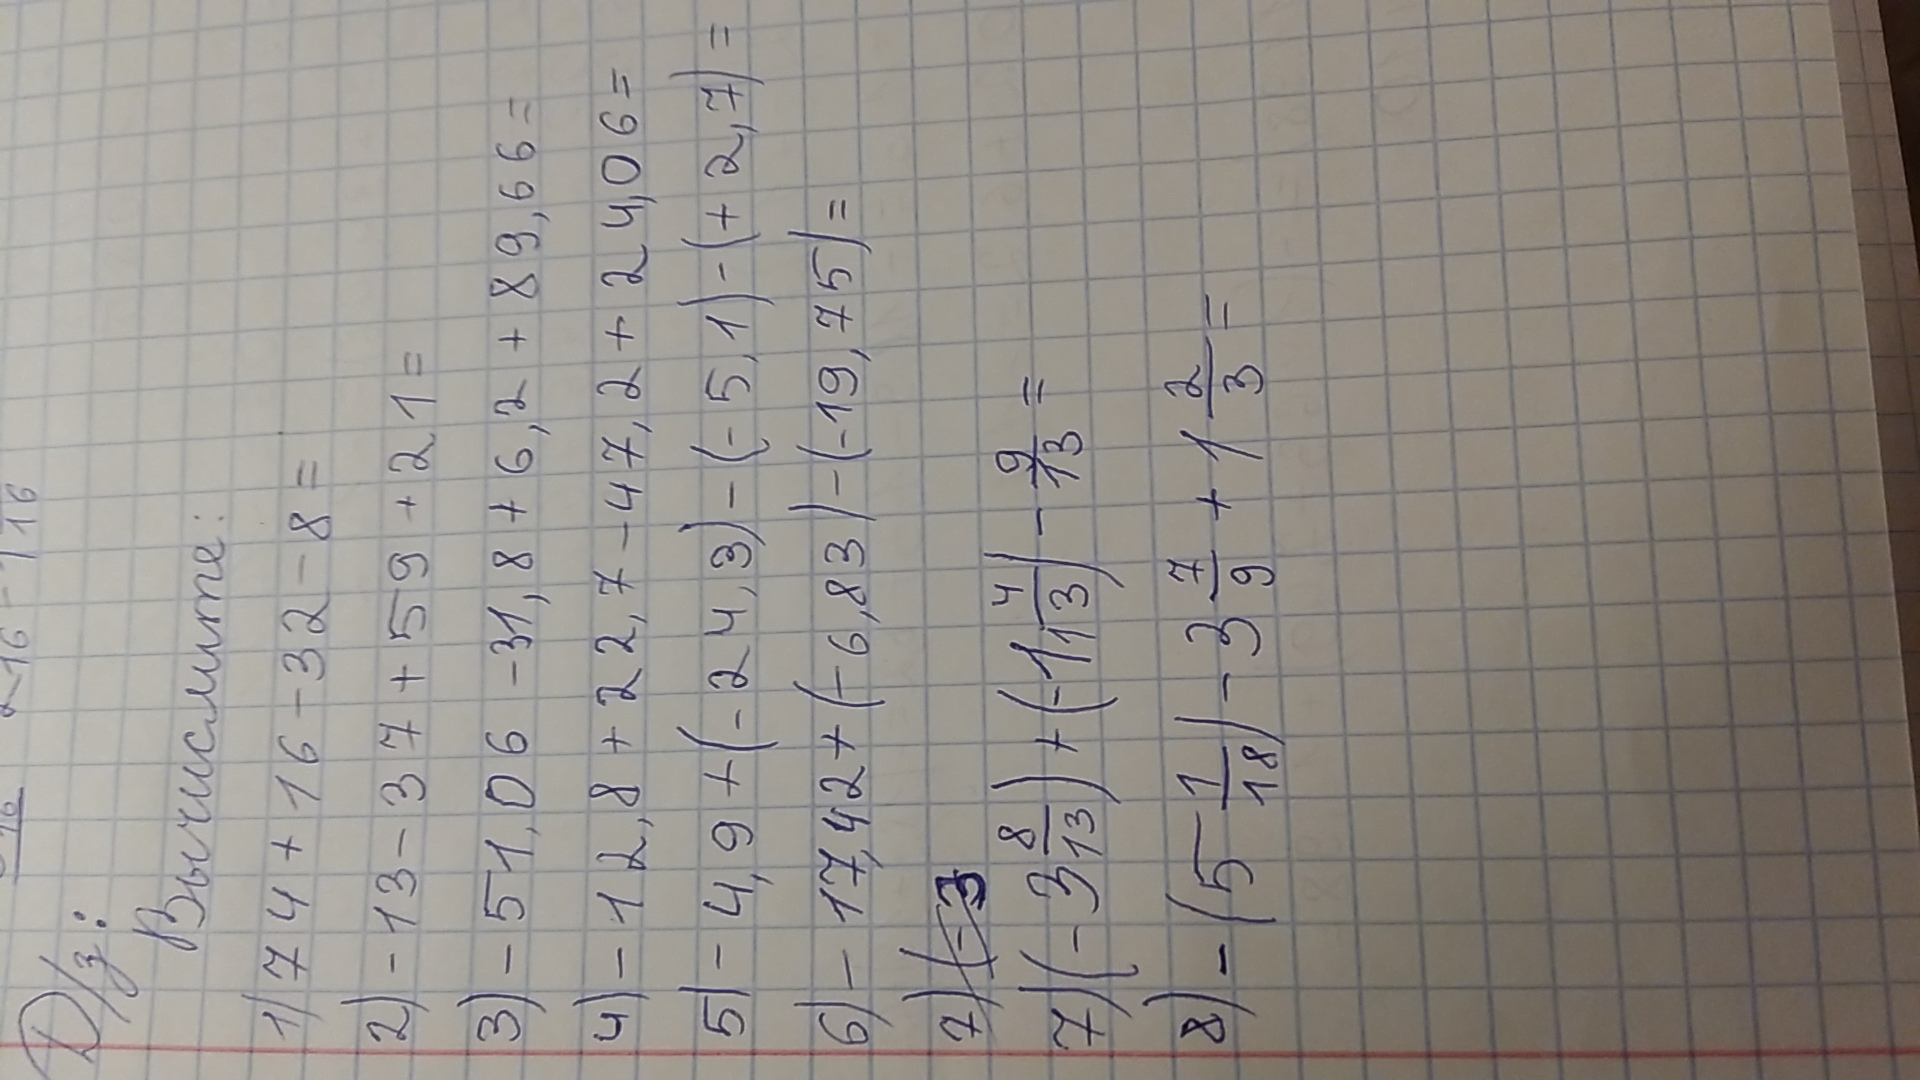 Д/з:
Вычислите:
1) 74 + 16 - 32 - 8 =
2) - 13 - 37 + 59 + 21 =
3) - 51,06 - 31,8 + 6,2 + 89,66 =
4) - 12,8 + 22,7 - 47,2 + 24,06 =
5) - 4,9 + (- 24,3) - (- 5,1) - (+ 2,7) =
6) - 17,42 + (- 6,83) - (-19,75) =
7) (-3
7) (- 3 8/13) + (-1 4/13) - 9/13 =
8) - (5 1/18) - 3 7/9 + 1 2/3 =